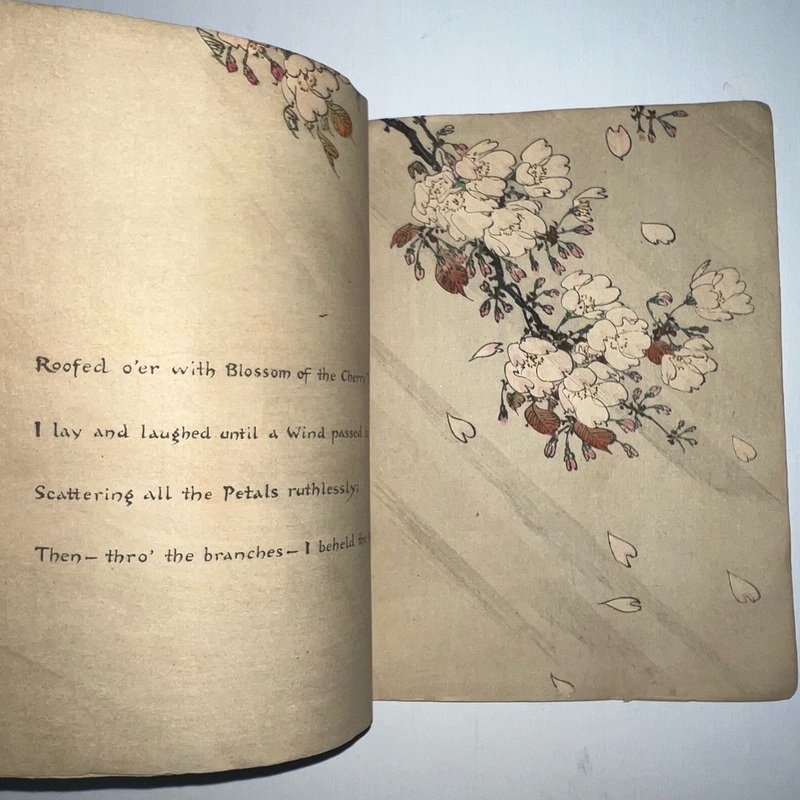 Roofed o'er with Blossom of the Cherry
I lay and laughed until a Wind passed
Scattering all the Petals ruthlessly;
Then— thro' the branches— I beheld the